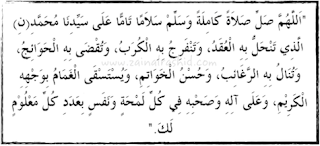 "اللَّهُمَّ صَلِّ صَلَاةً كَامِلَةً وَسَلِّمْ سَلَامًا تَامًّا عَلَى سَيِّدِنَا مُحَمَّدٍ(نِ)
الَّذِي تَنْحَلُّ بِهِ الْعُقَدُ، وَتَنْفَرِجُ بِهِ الْكُرَبُ، وَتُقْضَى بِهِ الْحَوَائِجُ،
وَتُنَالُ بِهِ الرَّغَائِبُ، وَحُسْنُ الْخَوَاتِمِ، وَيُسْتَسْقَى الْغَمَامُ بِوَجْهِهِ
الْكَرِيْمِ، وَعَلَى آلِهِ وَصَحْبِهِ فِي كُلِّ لَمْحَةٍ وَنَفَسٍ بِعَدَدِ كُلِّ مَعْلُوْمٍ
لَكَ."